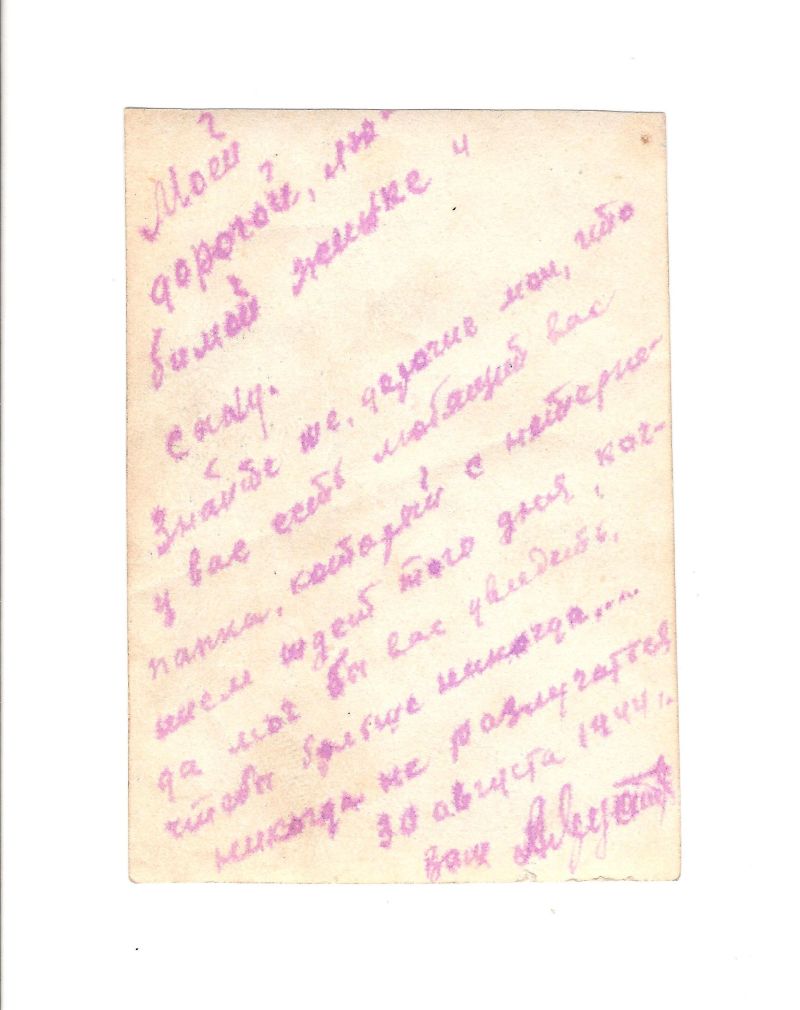 Моей
дорогой, лю-
бимой женушке и
сыну.
Знайте же, дорогие мои, что
у вас есть любящий вас
папка, который с нетерпе-
нием ждет того дня, ког-
да мог бы вас увидеть,
чтобы больше никогда....
никогда не разлучаться
30 августа 1944..
ваш Август